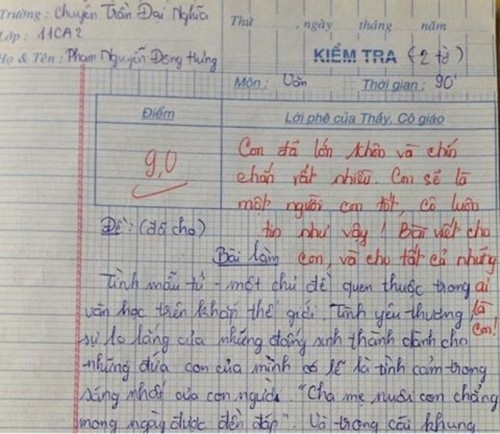 Trường: Chuyên Trần Đại Nghĩa
Lớp: 11CA2
Họ & Tên: Phạm Nguyễn Đông Hưng
Thứ ngày tháng năm
KIỂM TRA (2 tờ)
Môn: Văn Thời gian: 90'
Điểm
Lời phê của Thầy, Cô giáo
9,0
Con đã lớn khôn và chín
chắn rất nhiều. Con sẽ là
một người con tốt, cô luôn
tin như vậy! Bài viết cho
con, và cho tất cả những
ai
là
con!
Đề: (đã cho)
Bài làm
Tình mẫu tử - một chủ đề quen thuộc trong
văn học trên khắp thế giới. Tình yêu thương,
sự lo lắng của những đấng sinh thành dành cho
những đứa con của mình có lẽ là tình cảm trong
sáng nhất của con người. "Cha mẹ nuôi con chẳng
mong ngày được đền đáp". Và trong cái khung